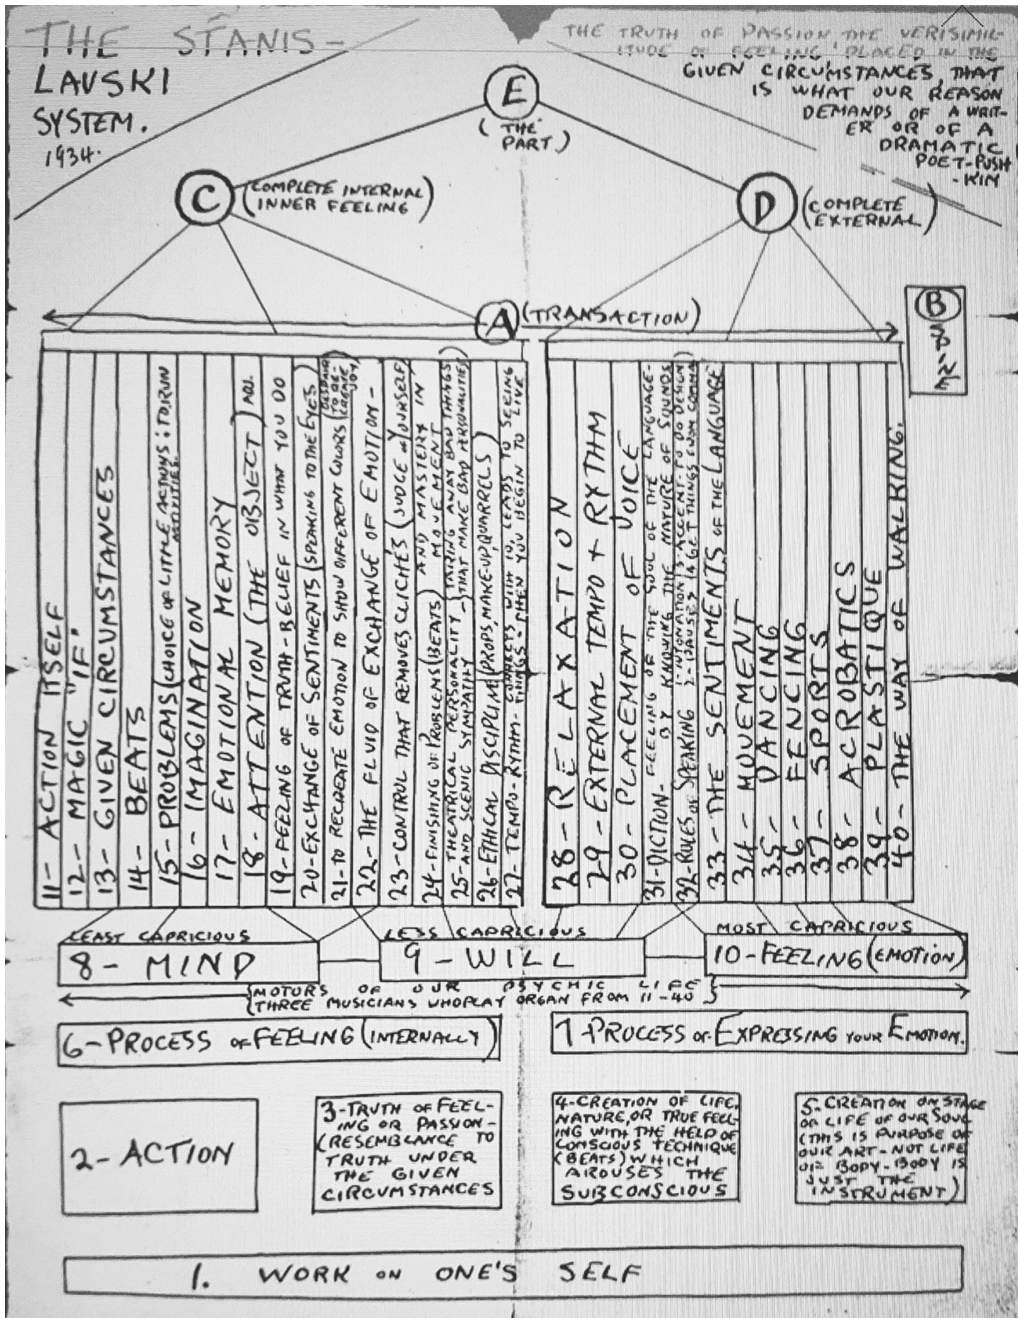 THE STANIS-
LAVSKI
SYSTEM.
1934.
THE TRUTH OF PASSION THE VERISIMIL-
ITUDE OF FEELING PLACED IN THE
GIVEN CIRCUMSTANCES, THAT
IS WHAT OUR REASON
DEMANDS OF A WRIT-
ER OR OF A
DRAMATIC
POET-PUSH
-KIN
E
(THE
PART)
C
(COMPLETE INTERNAL
INNER FEELING)
D
(COMPLETE
EXTERNAL)
A
(TRANSACTION)
B
SPINE
11- ACTION ITSELF
12- MAGIC "IF"
13- GIVEN CIRCUMSTANCES
14- BEATS
15- PROBLEMS (CHOICE OF LITTLE ACTIONS: TO RUN
ACTIVITIES.
16- IMAGINATION
17- EMOTIONAL MEMORY
18- ATTENTION (THE OBJECT) ADJ.
19- FEELING OF TRUTH-BELIEF IN WHAT YOU DO
20- EXCHANGE OF SENTIMENTS (SPEAKING TO THE EYES)
21- TO RECREATE EMOTION TO SHOW DIFFERENT COLORS (DESPAIR
TO RE-
CREATE
JOY)
22- THE FLUID OF EXCHANGE OF EMOTION-
23- CONTROL THAT REMOVES CLICHÉS (JUDGE OF YOURSELF)
24- FINISHING OF PROBLEMS (BEATS) AND MASTERY IN
MOVEMENT
25- THEATRICAL PERSONALITY (TAKING AWAY BAD THINGS
AND SCENIC SYMPATHY - THAT MAKE BAD PERSONALITIES)
26- ETHICAL DISCIPLINE (PROPS, MAKE-UP, QUARRELS)
27- TEMPO-RYTHM- CONNECTS WITH 10, LEADS TO SEEING
THINGS- THEN YOU BEGIN TO LIVE
28- RELAXATION
29- EXTERNAL TEMPO + RYTHM
30- PLACEMENT OF VOICE
31- DICTION- FEELING OF THE SOUL OF THE LANGUAGE-
BY KNOWING THE NATURE OF SOUNDS
32- RULES OF SPEAKING 1-INTONATIONS-ACCENT-TO DO DESIGN)
2-PAUSES (4 GET THINGS FROM COMMA)
33- THE SENTIMENTS OF THE LANGUAGE
34- MOVEMENT
35- DANCING
36- FENCING
37- SPORTS
38- ACROBATICS
39- PLASTIQUE
40- THE WAY OF WALKING.
LEAST CAPRICIOUS
LESS CAPRICIOUS
MOST CAPRICIOUS
8- MIND
9- WILL
10-FEELING (EMOTION)
{MOTORS OF OUR PSYCHIC LIFE
THREE MUSICIANS WHO PLAY ORGAN FROM 11-40}
6-PROCESS OF FEELING (INTERNALLY)
7-PROCESS OF EXPRESSING YOUR EMOTION.
2- ACTION
3-TRUTH OF FEEL-
ING OR PASSION-
(RESEMBLANCE TO
TRUTH UNDER
THE GIVEN
CIRCUMSTANCES
4-CREATION OF LIFE,
NATURE, OR TRUE FEEL-
ING WITH THE HELP OF
CONSCIOUS TECHNIQUE
(BEATS) WHICH
AROUSES THE
SUBCONSCIOUS
5-CREATION ON STAGE
OF LIFE OF OUR SOUL
(THIS IS PURPOSE OF
OUR ART-NOT LIFE
OF BODY-BODY IS
JUST THE
INSTRUMENT)
1. WORK ON ONE'S SELF